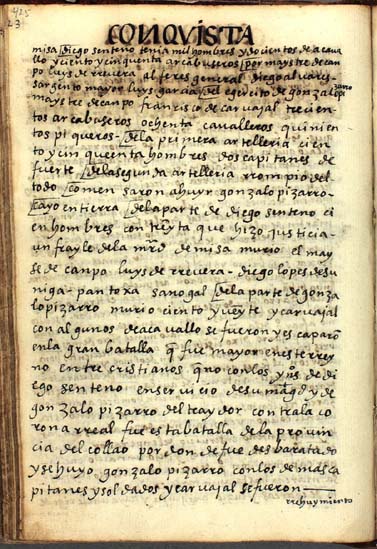 425
23
CONQVISTA
misa / diego senteno tenia mil hombres y docientos de a cava
llo y ciento y cinquenta arcabuseros / por maystre de can
po luys de rrevera alferes general diego alvares
sargento mayor luys garcia / del egercito de gonzalo pi
zarro
maystre de canpo francisco de carvajal trecien
tos arcabuseros ochenta cavalleros quinien
tos piqueros / de la primera artelleria cien
to y cinqueenta hombres dos capitanes de
fuerte / de la segunda artelleria rrompio del
todo / comensaron a huyr gonzalo pizarro
cayo en tierra / de la parte de diego senteno ci
en hombres con treyta que hizo justicia
un frayle de la mrd de misa murio el may
se de canpo luys de rrevera - diego lopes de su
niga - pantoxa sanogal / de la parte de gonza
lo pizarro murio ciento y veyte y carvajal
con algunos de acavallo se fueron y escaparon
en la gran batalla q fue mayor en este rrey
no entre cristianos que con los yos de di
ego senteno en servicio de su magd y de
gonzalo pizarro del traydor contra la co
rona rreal fue esta batalla de la provin
cia del collao por don de fue desbaratado
y se huyo gonzalo pizarro con los demas ca
pitanes y soldados y carvajal se fueron